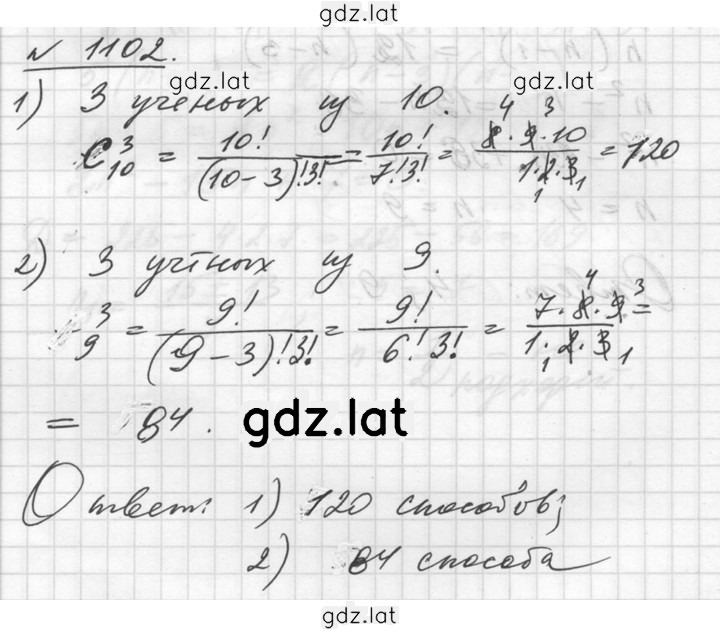 gdz.lat
N 1102.
gdz.lat gdz.lat
1) 3 ученых из 10.
C₁₀³ = 10!/(10-3)!3! = 10!/7!3! = 8·9·10/1·2·3 = 120
4 3
1 1
2) 3 учёных из 9.
₉³ = 9!/(9-3)!3! = 9!/6!3! = 7·8·9/1·2·3 =
4 3
1 1
= 84.
gdz.lat
Ответ: 1) 120 способов;
2) 84 способа
gdz.lat